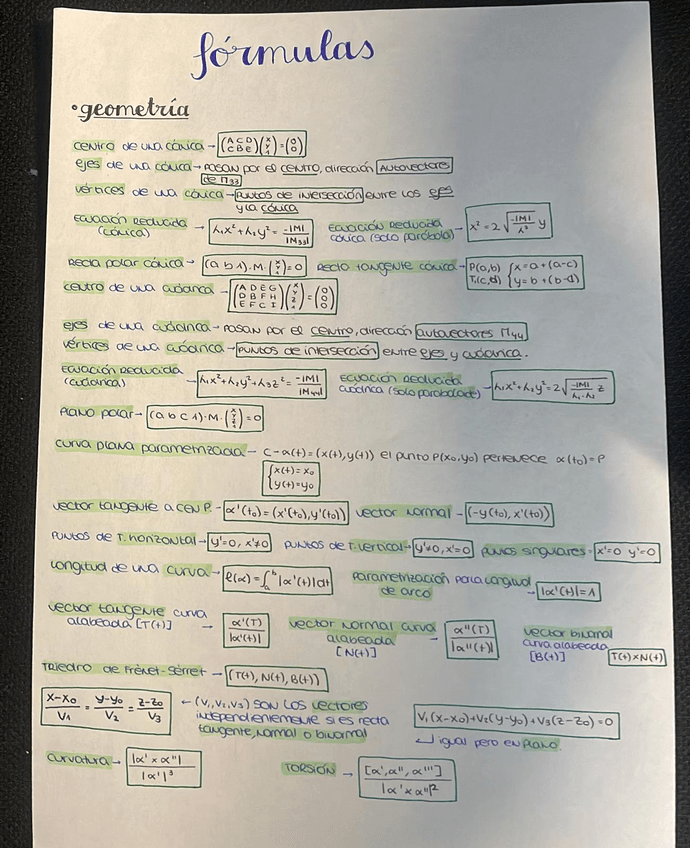 fórmulas
• geometría
centro de una cónica → (A C D / C B E)(x / y / 1) = (0 / 0)
ejes de una cónica → pasan por el centro, dirección autovectores
de M33
vértices de una cónica → puntos de intersección entre los ejes
y la cónica
Ecuación Reducida (cónica) → λ1x² + λ2y² = -|M| / |M33| Ecuación Reducida cónica (solo parábola) → x² = 2√(-|M| / λ³) y
Recta polar cónica → (a b 1)·M·(x / y / 1) = 0 Recta tangente cónica → P(a,b) T1(c,d) { x = a + (a-c) / y = b + (b-d)
centro de una cuádrica → (A D E G / D B F H / E F C I)(x / y / z / 1) = (0 / 0 / 0)
ejes de una cuádrica → pasan por el centro, dirección autovectores M44
vértices de una cuádrica → puntos de intersección entre ejes y cuádrica.
Ecuación Reducida (cuádrica) → λ1x² + λ2y² + λ3z² = -|M| / |M44| Ecuación Reducida cuádrica (solo paraboloide) → λ1x² + λ2y² = 2√(-|M| / λ1·λ2) z
Plano polar → (a b c 1)·M·(x / y / z / 1) = 0
curva plana parametrizada — C → α(t) = (x(t), y(t)) el punto P(x0, y0) pertenece α(t0) = P
{ x(t) = x0
y(t) = y0
vector tangente a C en P. → α'(t0) = (x'(t0), y'(t0)) vector normal → (-y(t0), x'(t0))
puntos de T. horizontal → y'=0, x'≠0 puntos de T. vertical → y'≠0, x'=0 puntos singulares = x'=0 y'=0
longitud de una curva → ℓ(α) = ∫ₐᵇ |α'(t)| dt parametrización para longitud de arco → |α'(t)| = 1
vector tangente curva alabeada [T(t)] → α'(T) / |α'(t)| vector normal curva alabeada [N(t)] → α''(T) / |α''(t)| vector binormal curva alabeada [B(t)] T(t) × N(t)
Triedro de Frênet-Serret → (T(t), N(t), B(t))
x-x0 / V1 = y-y0 / V2 = z-z0 / V3 ← (V1, V2, V3) son los vectores independientemente si es recta tangente, normal o binormal V1(x-x0) + V2(y-y0) + V3(z-z0) = 0
↵ igual pero en plano.
curvatura → |α' × α''| / |α'|³ TORSIÓN → [α', α'', α'''] / |α' × α''|²